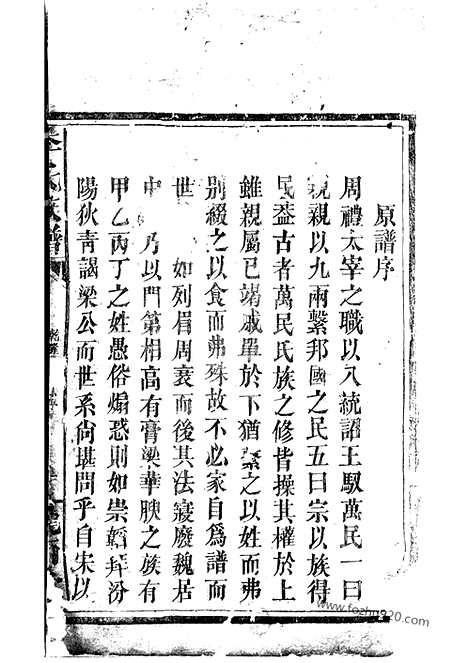 原譜序
周禮太宰之職以八統詔王馭萬民一曰
親親以九兩繫邦國之民五曰宗以族得
民葢古者萬民氏族之修皆操其權於上
雖親屬已竭戚單於下猶繫之以姓而弗
別綴之以食而弗殊故不必家自爲譜而
世 如列眉周衰而後其法寖廢魏居
中 乃以門第相高有膏粱華腴之族有
甲乙丙丁之姓愚俗煽惑則如崇韜拜汾
陽狄青謁梁公而世系尙堪問乎自宋以
氏族譜
www.fozhu920.com